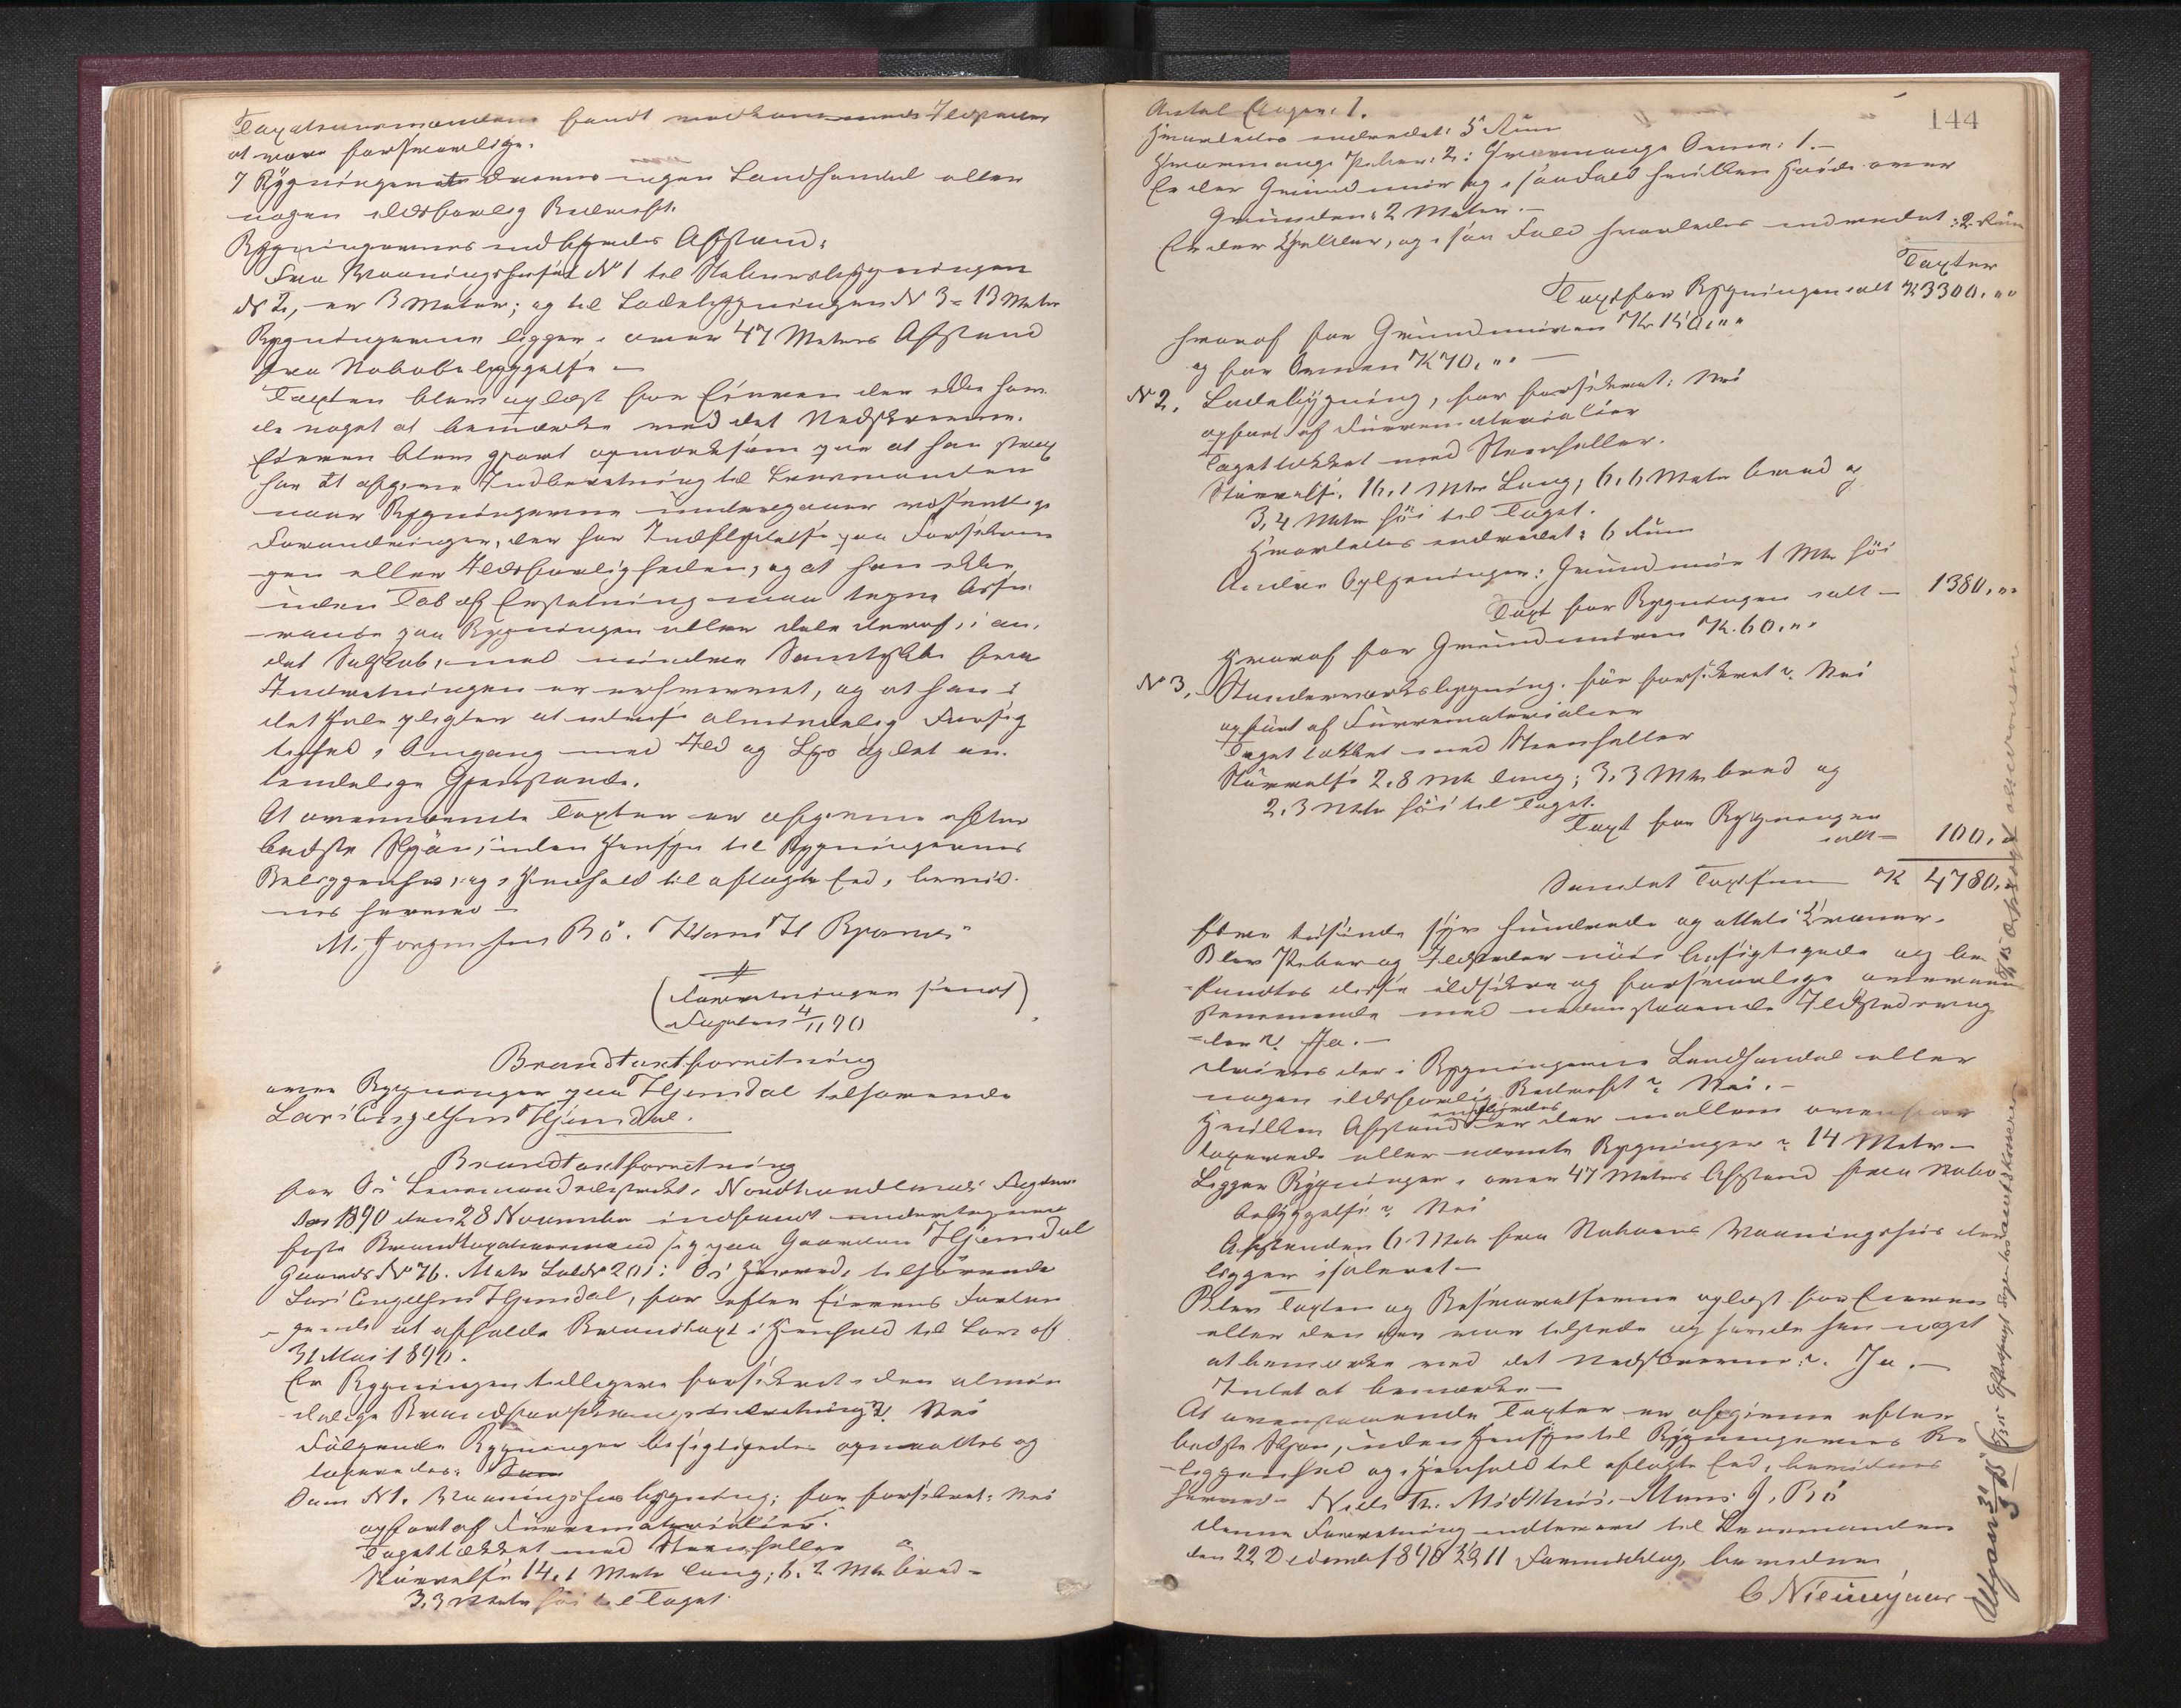 Taxationsmændene fandt vedkommende Ildsteder
at være forsvarlige.
I Bygningerne drives ingen Landhandel eller
nogen ildsfarlig Bedrift.
Bygningernes indbyrdes Afstand:
Fra Vaaningshuset No 1 til Stabursbygningen
No 2, er 3 Meter; og til Ladebygningen No 3 = 13 Meter
Bygningerne ligger i over 47 Meters Afstand
fra Nabobebyggelse —
Taxten blev oplæst for Eieren der ikke hav-
de noget at bemærke ved det Nedskrevne.
Eieren blev gjort opmærksom paa at han strax
har at afgive Indberetning til Lensmanden
naar Bygningerne undergaaer væsentlige
Forandringer, der har Indflydelse paa Forsikrin-
gen eller Ildsfarligheden, og at han ikke
uden Tab af Erstatning maa tegne Assu-
rance paa Bygningen eller dele deraf, i an-
det Selskab, med mindre Samtykke fra
Indretningen er erhvervet, og at han i
det hele pligter at udvise almindelig Forsig
tighed i Omgang med Ild og Lys og let an-
tendelige Gjenstande.
At ovennævnte Taxter er afgivne efter
bedste Skjøn, uden Hensyn til Bygningernes
Beliggenhed, og i Henhold til aflagte Ed, bevid-
nes herved —
M. Jørgensen Bö. Hans H
(Forretningen sendt)
(Fogden 4/11 90)
Brandtaxtforretning
over Bygninger paa Hjemdal tilhørende
Lars Engelsen Hjemdal.
Brandtaxtforretning
for Os Lensmandsdistrikt, Nordhordlens Fogderi
Aar 1890 den 28 November indfandt undertegnede
faste Brandtaxationsmænd sig paa Gaarden Hjemdal
Gaards No 76. Matr Løbe No 201: Os Herred, tilhørende
Lars Engelsen Hjemdal, for efter Eierens Forlan
gende at afholde Brandtaxt i Henhold til Lov af
31 Mai 1890.
Er Bygningen tidligere forsikret i den almin
delige Brandforsikringsindretning? Nei
Følgende Bygninger besigtigedes opmaaltes og
taxeredes:
Som No 1. Vaaningshusbygning; før forsikret: Nei
opført af Furrematerialier.
Taget tækket med Steenheller
Størrelse 14,1 Meter lang; 6,2 Mtr bred -
3,3 Meter høi til Taget
144
Antal Etager: 1.
Hvorledes indredet: 5 Rum
Hvormange Piber: 2: Hvormange Ovne: 1. —
Er der Grundmur og i saafald hvilken Høide over
Grunden: 2 Meter. —
Er der Kjelder, og i saa Fald hvorledes indredet: 2 Rum
Taxter
Taxt for Bygningen ialt K 3300. „„
hvoraf for Grundmuren Kr 150. „„
og for Ovnen K 70. „„ —
No 2. Ladebygning, før forsikret: Nei
opført af Furrematerialier
Taget tækket med Steenheller.
Størrelse. 16,1 Mtr Lang; 6,6 Meter bred og
3,4 Meter høi til Taget.
Hvorledes indredet: 6 Rum
Andre Oplysninger: Grundmur 1 Mtr høi
Taxt for Bygningen ialt — 1380. „„
Hvoraf for Grundmuren K. 60. „„
No 3. Standerværksbygning. før forsikret? Nei
opført af Furrematerialier
Taget tækket med Steenheller
Størrelse 2,8 Mtr lang; 3,3 Mtr bred og
2,3 Meter høi til Taget.
Taxt for Bygningen
ialt — 100. „
Samlet Taxtsum K 4780.
fire tusinde syv hundrede og otteti Kroner.
Blev Piber og Ildsteder nøie besigtigede og be
fundtes disse ildsikre og forsvarlige overeens
stemmende med nedenstaaende Ildstedsreg
ler? Ja. —
Drives der i Bygningerne Landhandel eller
nogen ildsfarlig Bedrift? Nei. —
Hvilken Afstand indbyrdes er der mellem ovenfor
taxerede eller nævnte Bygninger? 14 Meter —
Ligger Bygninger i over 47 Meters Afstand fra Nabo
bebyggelse? Nei
Afstanden 6 Mtr fra Naboens Vaaningshus der
ligger isoleret —
Blev Taxten og Besvarelserne oplæst for Eieren
eller den der var tilstede og havde han noget
at bemærke ved det Nedskrevne?. Ja. —
Intet at bemærke —
At ovenstaaende Taxter er afgivne efter
bedste Skjøn, uden Hensyn til Bygningernes Be
liggenhed og i Henhold til aflagte Ed, bevidnes
herved — Niels Th. Midthus. Mons J. Bö
Denne Forretning indleveret til Lensmanden
den 22 December 1890 Kl 11 Formiddag, bevidner
C Niemejer